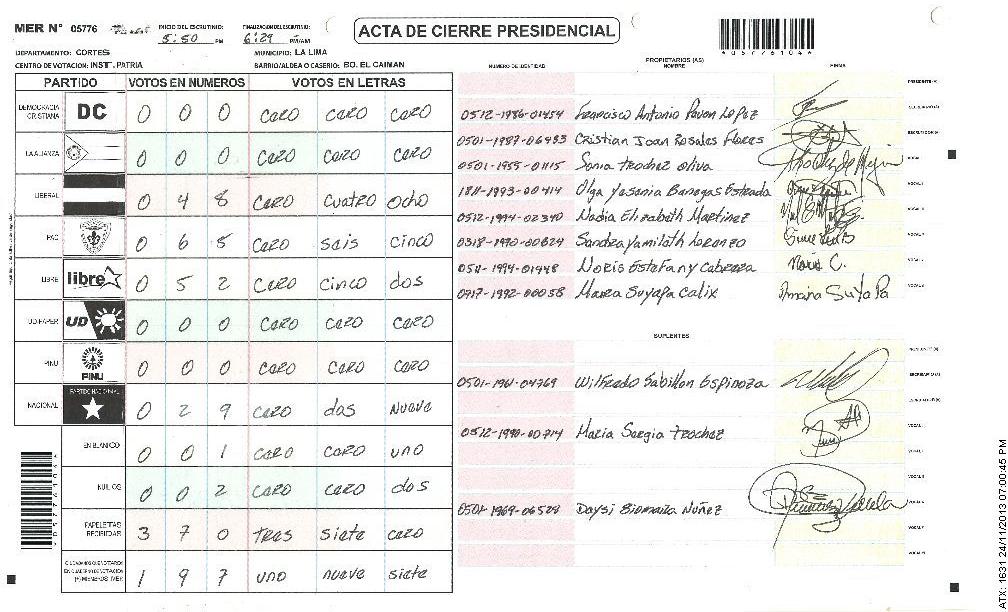 MER N° 05776 INICIO DEL ESCRUTINIO: 5:50 PM FINALIZACION ESCRUTINIO: 6:29 PM/AM
ACTA DE CIERRE PRESIDENCIAL
DEPARTAMENTO: CORTES MUNICIPIO: LA LIMA
CENTRO DE VOTACION: INST. PATRIA BARRIO/ALDEA O CASERIO: BO. EL CAIMAN
PARTIDO VOTOS EN NUMEROS VOTOS EN LETRAS
DEMOCRACIA CRISTIANA DC 0 0 0 CERO CERO CERO
LA ALIANZA 0 0 0 CERO CERO CERO
LIBERAL 0 4 8 CERO cuatro ocho
PAC 0 6 5 CERO seis cinco
LIBRE libre 0 5 2 CERO cinco dos
UD-FAPER UD 0 0 0 CERO CERO CERO
PINU PINU 0 0 0 CERO CERO CERO
NACIONAL PARTIDO NACIONAL 0 2 9 CERO dos Nueve
EN BLANCO 0 0 1 CERO CERO uno
NULOS 0 0 2 CERO CERO dos
PAPELETAS RECIBIDAS 3 7 0 TRES siete CERO
1 9 7 uno nueve siete
NUMERO DE IDENTIDAD PROPIETARIOS (AS) NOMBRE FIRMA
0512-1986-01454 Francisco Antonio Pavon Lopez
0501-1987-06433 Cristian Joan Rosales Flores
0501-1955-01115 Sonia Trochez Oliva
1811-1993-00414 Olga Yesenia Banegas Estrada
0512-1994-02340 Nadia Elizabeth Martinez
0318-1990-00624 Sandra Yamileth Lorenzo
0511-1994-01448 Noris Estefany Cabrera Noris C.
0717-1992-00058 Maira Suyapa Calix Amaira Suyapa
SUPLENTES
0501-1961-04769 Wilfredo Sabillon Espinoza
0512-1990-00714 Maria Sergia Trochez
0501-1969-06528 Daysi Xiomara Nuñez
ATX: 1631 24/11/2013 07:00:45 PM